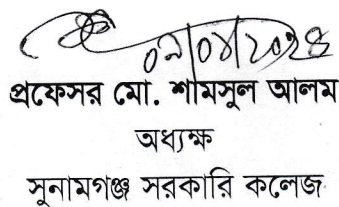 ০৯|০৪|২০২৪
প্রফেসর মো. শামসুল আলম
অধ্যক্ষ
সুনামগঞ্জ সরকারি কলেজ